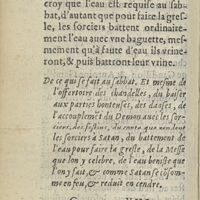 croy que l'eau est requise au sab-
bat, d'autant que pour faire la gres-
le, les sorciers battent ordinaire-
ment l'eau auec vne baguette, mes-
mement qu'à faute d'eau ils vrine-
ront, & puis battront leur vrine.
De ce qui se fait au sabbat. Et mesme de
l'offertoire des chandelles, du baiser
aux parties honteuses, des danses, de
l'accouplement du Demon auec les sor-
ciers, des festins, du conte que rendent
les sorciers à Satan, du battement de
l'eau pour faire la gresle, de la Messe
que lon y celebre, de l'eau beniste que
l'on y fait, & comme Satan se consom-
me en feu, & reduit en cendre.